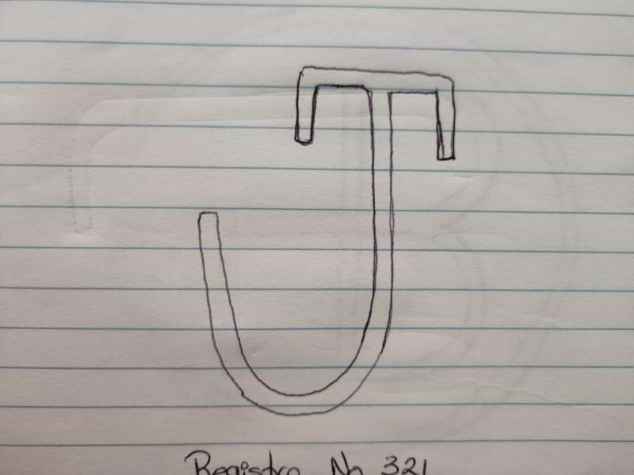 J
Registro No 321